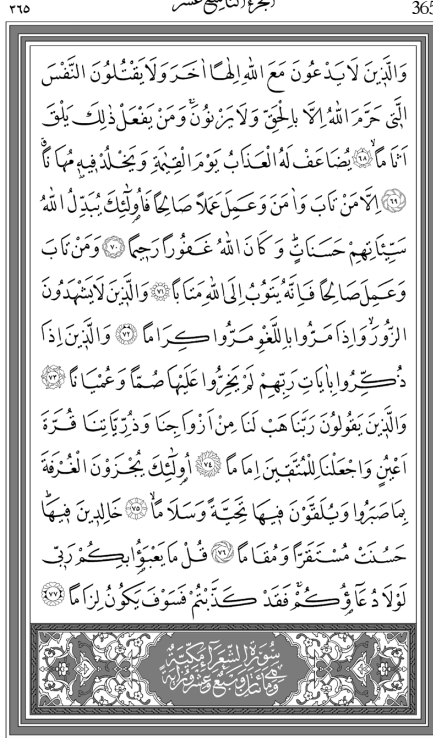 ٣٦٥ الجزء التاسع عشر 365
وَالَّذِينَ لَا يَدْعُونَ مَعَ اللهِ اِلٰهًا اٰخَرَ وَلَا يَقْتُلُونَ النَّفْسَ
الَّتِى حَرَّمَ اللهُ اِلَّا بِالْحَقِّ وَلَا يَزْنُونَۚ وَمَنْ يَفْعَلْ ذٰلِكَ يَلْقَ
اَثَامًاۙ ﴿٦٨﴾ يُضَاعَفْ لَهُ الْعَذَابُ يَوْمَ الْقِيٰمَةِ وَيَخْلُدْ فِيهِ مُهَانًاۗ
﴿٦٩﴾ اِلَّا مَنْ تَابَ وَاٰمَنَ وَعَمِلَ عَمَلًا صَالِحًا فَاُولٰٓئِكَ يُبَدِّلُ اللهُ
سَيِّـَٔاتِهِمْ حَسَنَاتٍۜ وَكَانَ اللهُ غَفُورًا رَحِيمًا ﴿٧٠﴾ وَمَنْ تَابَ
وَعَمِلَ صَالِحًا فَاِنَّهُ يَتُوبُ اِلَى اللهِ مَتَابًا ﴿٧١﴾ وَالَّذِينَ لَا يَشْهَدُونَ
الزُّورَۙ وَاِذَا مَرُّوا بِاللَّغْوِ مَرُّوا كِرَامًا ﴿٧٢﴾ وَالَّذِينَ اِذَا
ذُكِّرُوا بِاٰيَاتِ رَبِّهِمْ لَمْ يَخِرُّوا عَلَيْهَا صُمًّا وَعُمْيَانًا ﴿٧٣﴾
وَالَّذِينَ يَقُولُونَ رَبَّنَا هَبْ لَنَا مِنْ اَزْوَاجِنَا وَذُرِّيَّاتِنَا قُرَّةَ
اَعْيُنٍ وَاجْعَلْنَا لِلْمُتَّقِينَ اِمَامًا ﴿٧٤﴾ اُولٰٓئِكَ يُجْزَوْنَ الْغُرْفَةَ
بِمَا صَبَرُوا وَيُلَقَّوْنَ فِيهَا تَحِيَّةً وَسَلَامًاۙ ﴿٧٥﴾ خَالِدِينَ فِيهَاۜ
حَسُنَتْ مُسْتَقَرًّا وَمُقَامًا ﴿٧٦﴾ قُلْ مَا يَعْبَؤُا بِكُمْ رَبِّى
لَوْلَا دُعَاؤُكُمْۚ فَقَدْ كَذَّبْتُمْ فَسَوْفَ يَكُونُ لِزَامًا ﴿٧٧﴾
سُورَةُ الشُّعَرَاءِ مَكِّيَّةٌ
وَهِيَ مِائَتَانِ وَسَبْعٌ وَعِشْرُونَ اٰيَةً